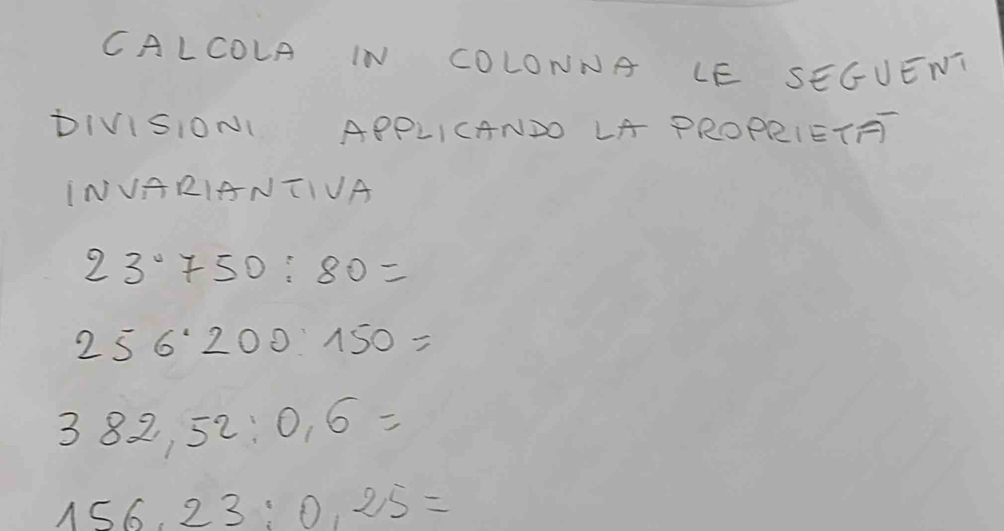 CALCOLA IN COLONNA LE SEGUENTI
DIVISIONI APPLICANDO LA PROPRIETÀ
INVARIANTIVA
23˙750:80=
256˙200:150=
382,52:0,6=
156,23:0,25=